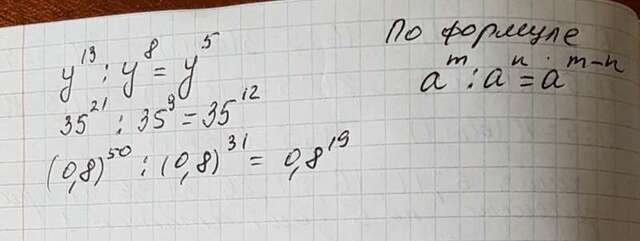 y¹³ : y⁸ = y⁵
35²¹ : 35⁹ = 35¹²
(0,8)⁵⁰ : (0,8)³¹ = 0,8¹⁹
По формуле
aᵐ : aⁿ = aᵐ⁻ⁿ